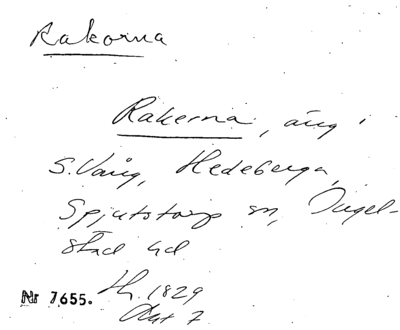 Rakorna
Rakerna, äng i
S. Vång, Hedeberga,
Spjutstorps sn, Ingel-
stad hd
Nr 7655.
1829
Akt 7